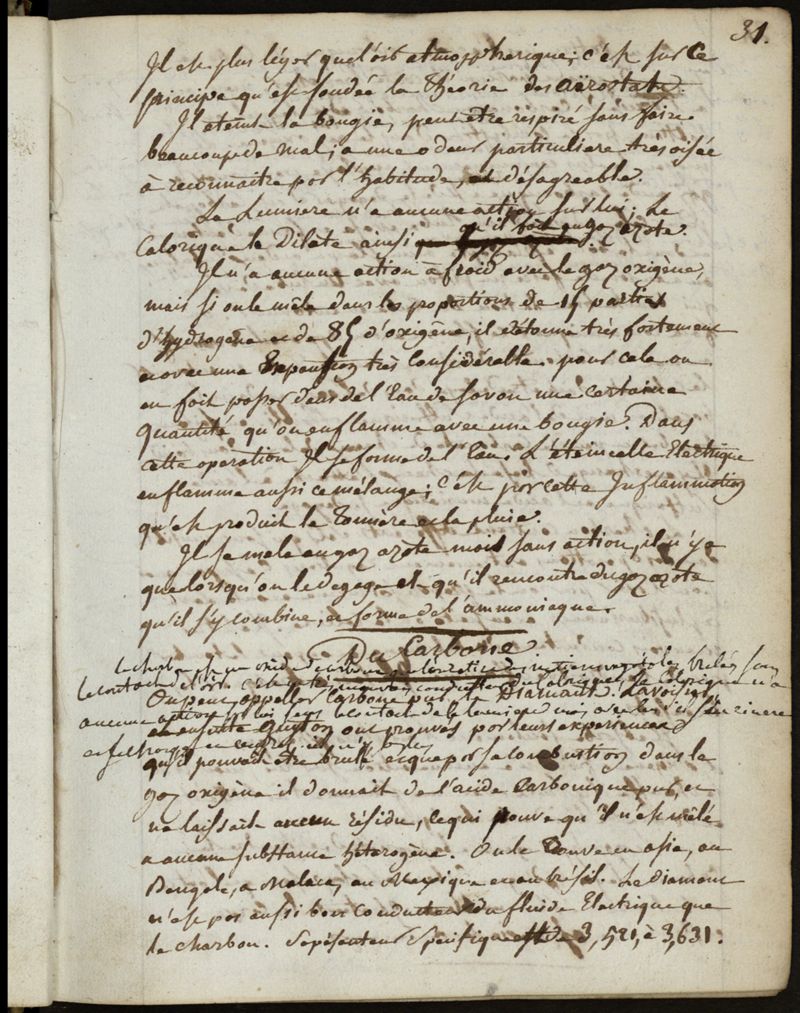 31.
Il est plus léger que l'air atmospherique; c'est sur ce
principe qu'est fondée la théorie des aërostats.
Il eteint la bougie, peut etre respiré sans faire
beaucoup de mal, a une odeur particuliere très aisée
à reconnaitre par l'habitude, et désagreable.
La Lumiere n'a aucune action sur lui; Le
Calorique le Dilate ainsi qu'il fait du gaz azote.
Il n'a aucune action à froid avec le gaz oxigène,
mais si on le mêle dans les proportions de 15 parties
d'hydrogène et de 85 d'oxigène, il détonne très fortement
et avec une Expansion très Considérable. pour cela on
en fait passer dans de l'Eau de Savon une certaine
quantité qu'on enflamme avec une bougie. Dans
cette operation Il se forme de l'Eau. L'étincelle Electrique
enflamme aussi ce mélange; C'est par cette Inflammation
qu'est produit le Tonnere et la pluie.
Il se mele au gaz azote mais sans action, il n'y a
que lorsqu'on le degage et qu'il rencontre du gaz azote
qu'il s'y combine, et forme de l'ammoniaque.
Du Carbone
Le charbon est un oxide de carbone matieres végétales brulées sans
le contact de l'air. C'est un très mauvais conducteur du calorique, Le Calorique n'a
aucune action sur lui sans le contact de la lumiere mais avec lui
On peut appeller Carbone pur le Diamant. Lavoisier
et ensuite Guyton ont prouvés par leurs experiences
qu'il pouvait être brulé et que par sa Combustion dans le
gaz oxigène il donnait de l'acide Carbonique pur, et
ne laissait aucun résidu, ce qui prouve qu'il n'est mêlé
a aucune substance hétérogène. On le trouve en asie, au
Bengale, a Malaca, au Mexique et au brésil. Le Diamant
n'est pas aussi bon Conducteur du fluide Electrique que
le charbon. Sa pésanteur Spécifique est de 3,521, à 3,631.